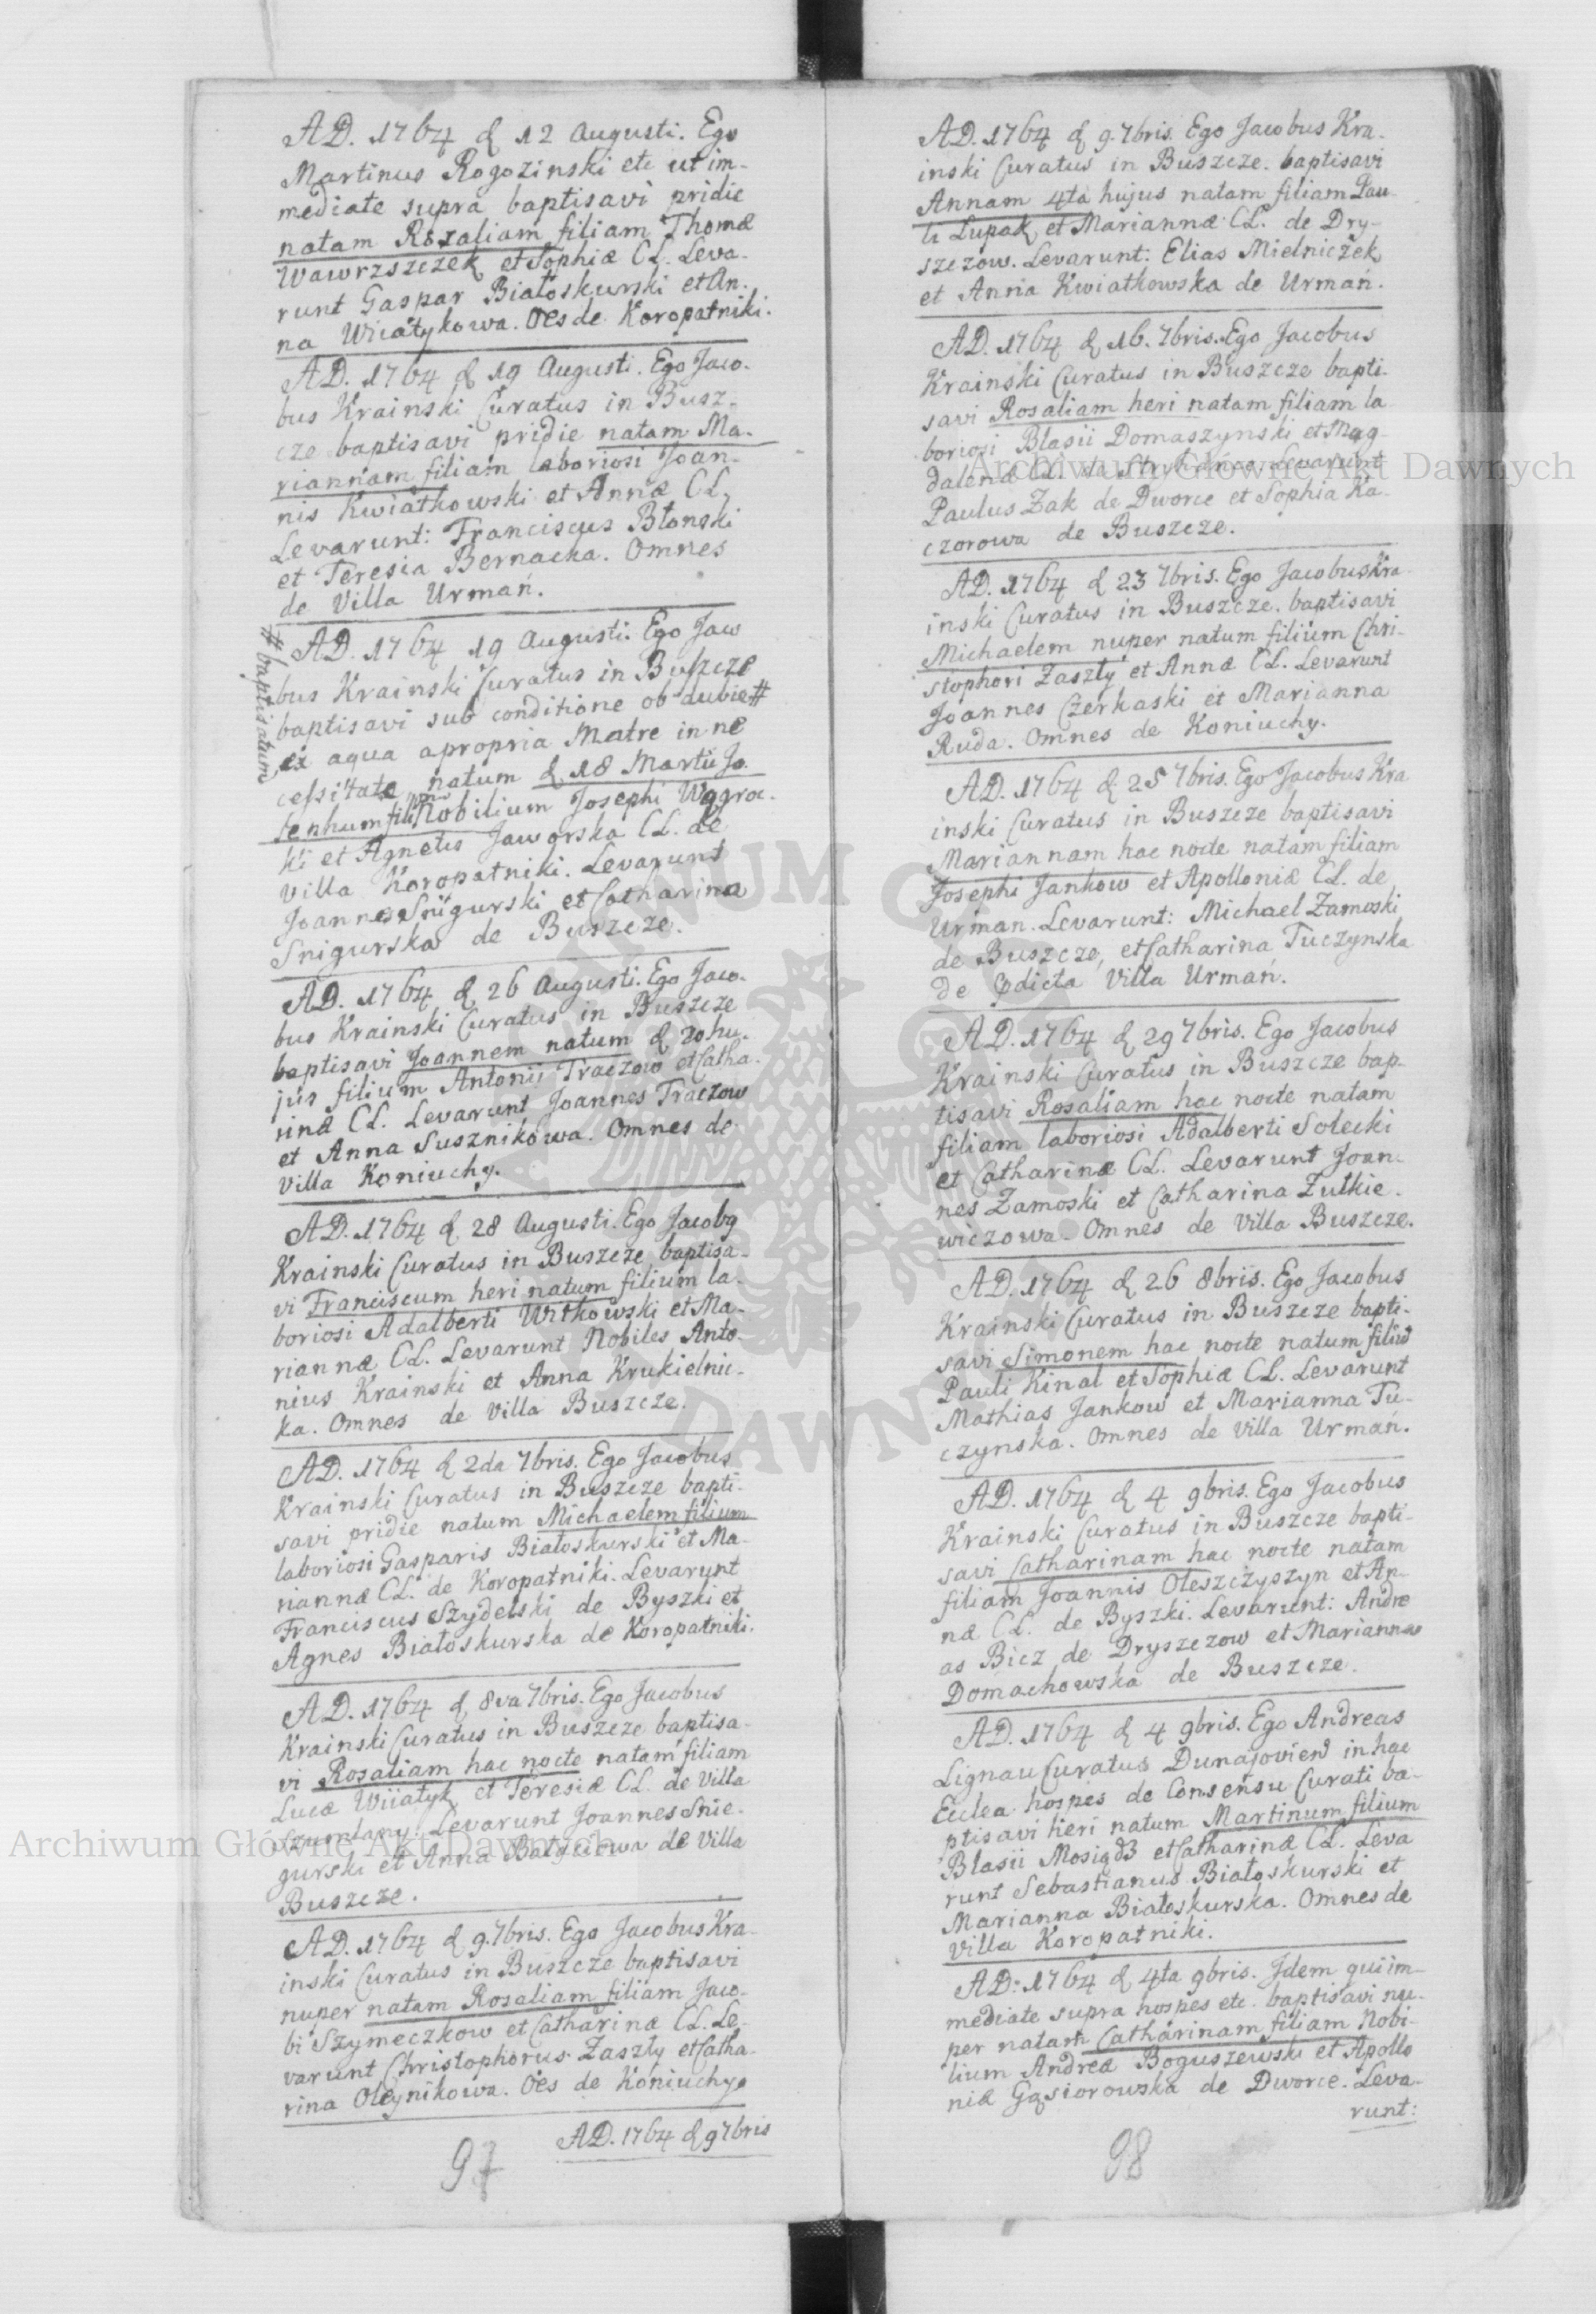 AD. 1764 d 12 Augusti. Ego
Martinus Rogozinski etc ut im-
mediate supra baptisavi pridie
natam Rozaliam filiam Thomæ
Wawrzszczek et Sophiæ CL. Leva-
runt Gaspar Białoskurski et An-
na Wiiatykowa. Oẽs de Koropatniki.
AD. 1764 d 19 Augusti. Ego Jaco-
bus Krainski Curatus in Busz-
cze baptisavi pridie natam Ma-
riannam filiam laboriosi Joan-
nis Kwiatkowski et Annæ CL,
Levarunt: Franciscus Błonski
et Teresia Bernacka. Omnes
de Villa Urmań.
AD. 1764 19 Augusti. Ego Jaco
bus Krainski Curatus in Buszcze
baptisavi sub conditione ob dubie #
# baptisatum
ex aqua a propria Matre in ne
cessitate natum d 18 Martii Jo-
sephum fili Nobilium Josephi Węgroc-
ki et Agnetis Jaworska CL. de
Villa Koropatniki. Levarunt
Joannes Snigurski et Catharina
Snigurska de Buszcze.
AD. 1764 d 26 Augusti. Ego Jaco-
bus Krainski Curatus in Buszcze
baptisavi Joannem natum d 20 hu-
jus filium Antonii Traczow et Catha-
rinæ CL. Levarunt Joannes Traczow
et Anna Susznikowa. Omnes de
Villa Koniuchy.
AD. 1764 d 28 Augusti. Ego Jacobg
Krainski Curatus in Buszcze baptisa-
vi Franciscum heri natum filium la-
boriosi Adalberti Witkowski et Ma-
riannæ CL. Levarunt Nobiles Anto-
nius Krainski et Anna Krukielnic-
ka. Omnes de Villa Buszcze.
AD. 1764 d 2da 7bris. Ego Jacobus
Krainski Curatus in Buszcze bapti-
savi pridie natum Michaelem filium
laboriosi Gasparis Białoskurski et Ma-
riannæ CL. de Koropatniki. Levarunt
Franciscus Szydelski de Byszki et
Agnes Białoskurska de Koropatniki.
AD. 1764 d 8va 7bris. Ego Jacobus
Krainski Curatus in Buszcze baptisa-
vi Rosaliam hac nocte natam filiam
Lucæ Wiiatyk et Teresiæ CL. de Villa
Szumlany. Levarunt Joannes Snie-
gurski et Anna de Villa
Buszcze.
AD. 1764 d 9. 7bris. Ego Jacobus Kra-
inski Curatus in Buszcze baptisavi
nuper natam Rosaliam filiam Jaco-
bi Szymeczkow et Catharinæ CL. Le-
varunt Christophorus Zaszły et Catha-
rina Oleynikowa. Oẽs de Koniuchy.
AD. 1764 d 9 7bris
97
AD. 1764 d 9. 7bris. Ego Jacobus Kra-
inski Curatus in Buszcze. baptisavi
Annam 4ta hujus natam filiam Pau-
li Lupak et Mariannæ CL. de Dry-
szczow. Levarunt: Elias Mielniczek
et Anna Kwiatkowska de Urmań.
AD. 1764 d 16. 7bris. Ego Jacobus
Krainski Curatus in Buszcze bapti-
savi Rosaliam heri natam filiam la
boriosi Blasii Domaszynski et Mag-
dalenæ CL. de Levarunt
Paulus Zak de Dworce et Sophia Ka-
czorowa de Buszcze.
AD. 1764 d 23 7bris. Ego Jacobus Kra-
inski Curatus in Buszcze. baptisavi
Michaelem nuper natum filium Chri-
stophori Zaszły et Annæ CL. Levarunt
Joannes Czerkaski et Marianna
Ruda. Omnes de Koniuchy.
AD. 1764 d 25 7bris. Ego Jacobus Kra
inski Curatus in Buszcze baptisavi
Mariannam hac nocte natam filiam
Josephi Jankow et Apolloniæ CL. de
Urman. Levarunt: Michael Zamoski
de Buszcze, et Catharina Tuczynska
de pdicta Villa Urmań.
AD. 1764 d 29 7bris. Ego Jacobus
Krainski Curatus in Buszcze bap-
tisavi Rosaliam hac nocte natam
filiam laboriosi Adalberti Solecki
et Catharinæ CL. Levarunt Joan-
nes Zamoski et Catharina Zulkie-
wiczowa. Omnes de Villa Buszcze.
AD. 1764 d 26 8bris. Ego Jacobus
Krainski Curatus in Buszcze bapti-
savi Simonem hac nocte natum filiũ
Pauli Kinal et Sophiæ CL. Levarunt
Mathias Jankow et Marianna Tu-
czynska. Omnes de Villa Urmań.
AD. 1764 d 4 9bris. Ego Jacobus
Krainski Curatus in Buszcze bapti-
savi Catharinam hac nocte natam
filiam Joannis Oleszczyszyn et An-
næ CL. de Byszki. Levarunt: Andre
as Bicz de Dryszczow et Marianna
Domachowska de Buszcze.
AD. 1764 d 4 9bris. Ego Andreas
Lignau Curatus in hac
Ecclea hospes de Consensu Curati ba-
ptisavi heri natum Martinum filium
Blasii et Catharinæ CL. Leva
runt Sebastianus Białoskurski et
Marianna Białoskurska. Omnes de
Villa Koropatniki.
AD: 1764 d 4ta 9bris. Idem qui im-
mediate supra hospes etc. baptisavi nu-
per natam Catharinam filiam Nobi-
lium Andreæ Boguszewski et Apollo
niæ Gąsiorowska de Dworce. Leva-
runt:
98
Archiwum Główne Akt Dawnych
Archiwum Główne Akt Dawnych